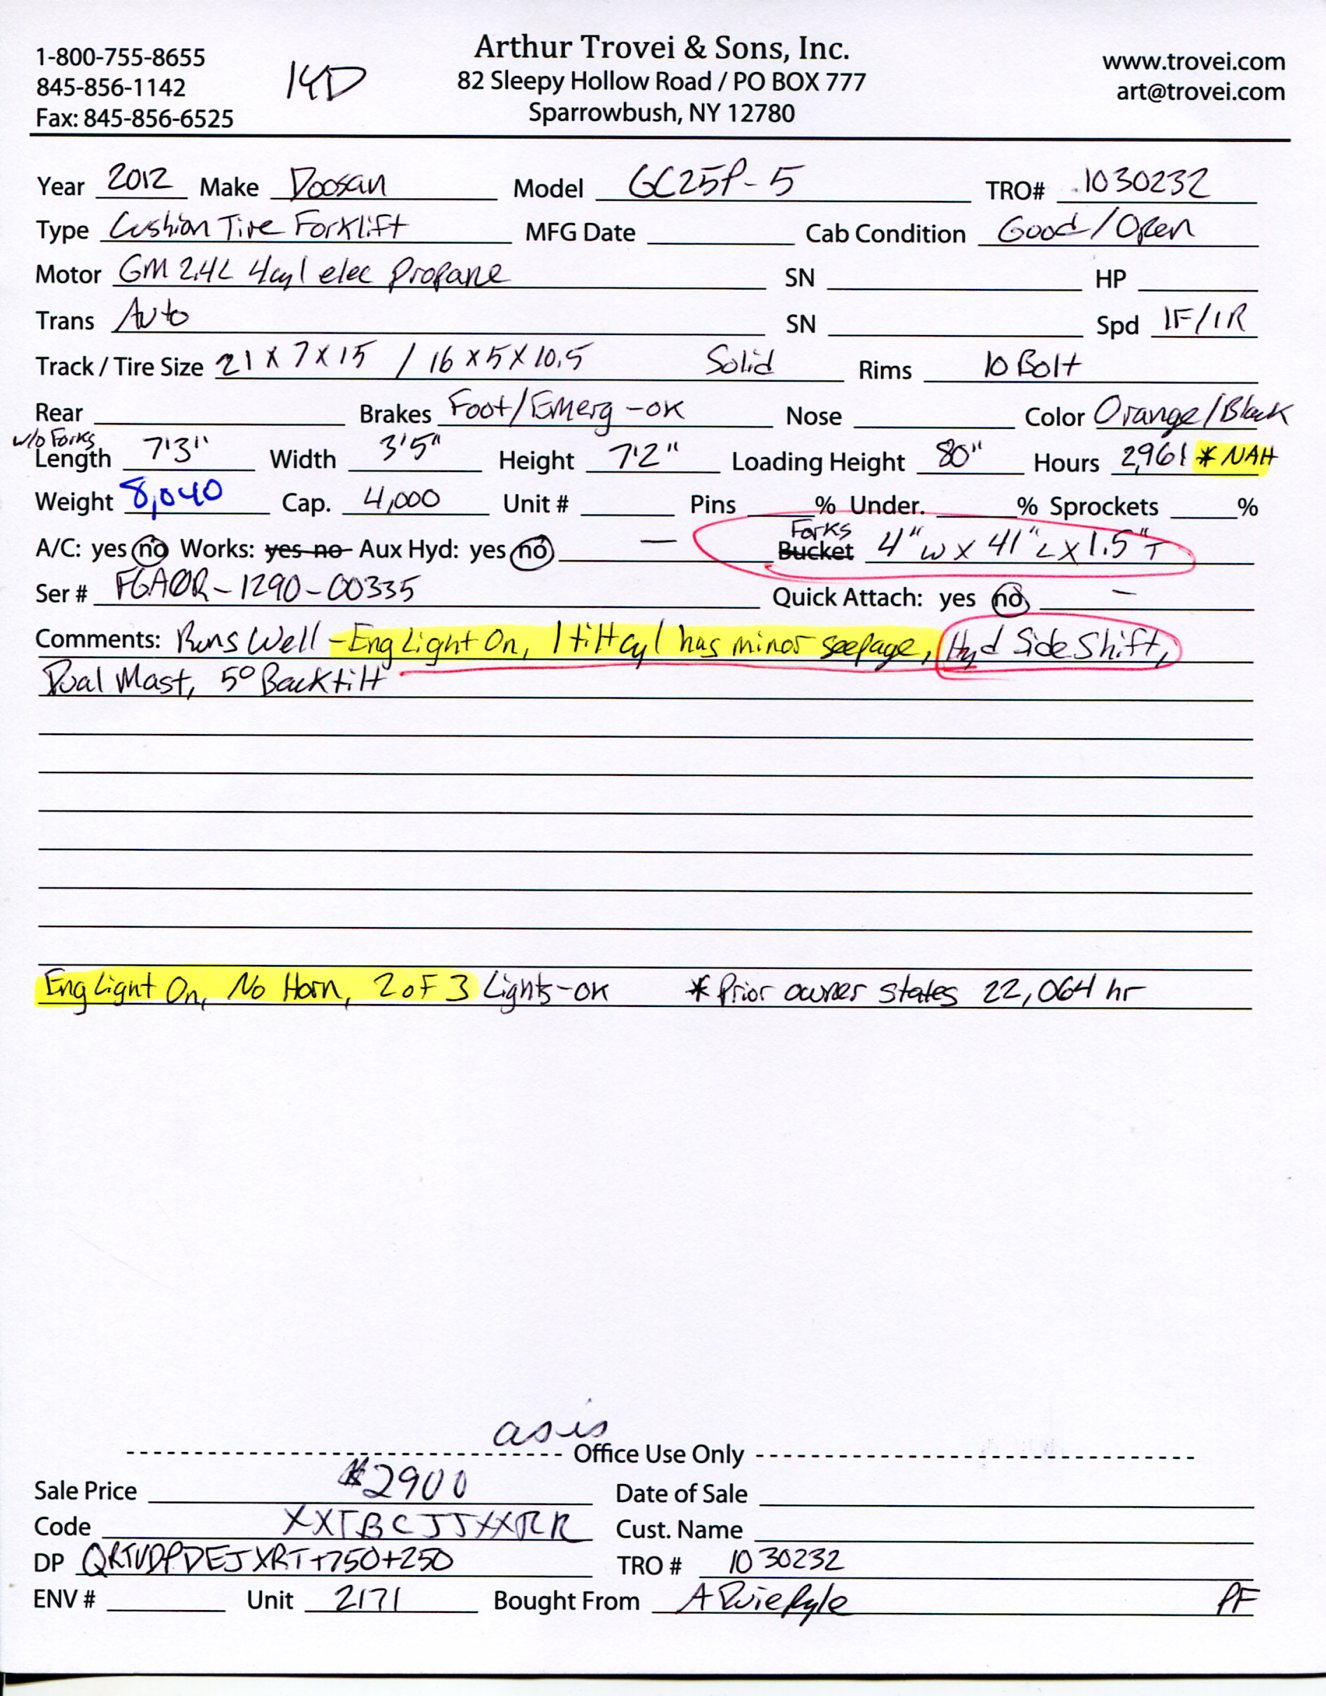 1-800-755-8655
845-856-1142
Fax: 845-856-6525
14D
Arthur Trovei & Sons, Inc.
82 Sleepy Hollow Road / PO BOX 777
Sparrowbush, NY 12780
www.trovei.com
art@trovei.com
Year 2012 Make Doosan Model GC25P-5 TRO# 1030232
Type Cushion Tire Forklift MFG Date Cab Condition Good/Open
Motor GM 2.4L 4cyl elec Propane SN HP
Trans Auto SN Spd 1F/1R
Track / Tire Size 21x7x15 / 16x5x10.5 Solid Rims 10 Bolt
Rear Brakes Foot/Emerg-ok Nose Color Orange/Black
w/o Forks
Length 7'3" Width 3'5" Height 7'2" Loading Height 80" Hours 2,961 *NAH
Weight 8,040 Cap. 4,000 Unit # Pins % Under. % Sprockets %
A/C: yes no Works: yes no Aux Hyd: yes no — Forks Bucket 4"W x 41"L x 1.5"T
Ser # FGA0R-1290-00335 Quick Attach: yes no —
Comments: Runs Well - Eng Light On, 1 tilt cyl has minor seepage, Hyd Side Shift,
Dual Mast, 5° Backtilt
Eng Light On, No Horn, 2 of 3 Lights-ok *Prior owner states 22,064 hr
as is
Office Use Only
Sale Price $2900 Date of Sale
Code XXTBCJJXXRR Cust. Name
DP QRTVDPDEJXRT+750+250 TRO # 1030232
ENV # Unit 2171 Bought From PF